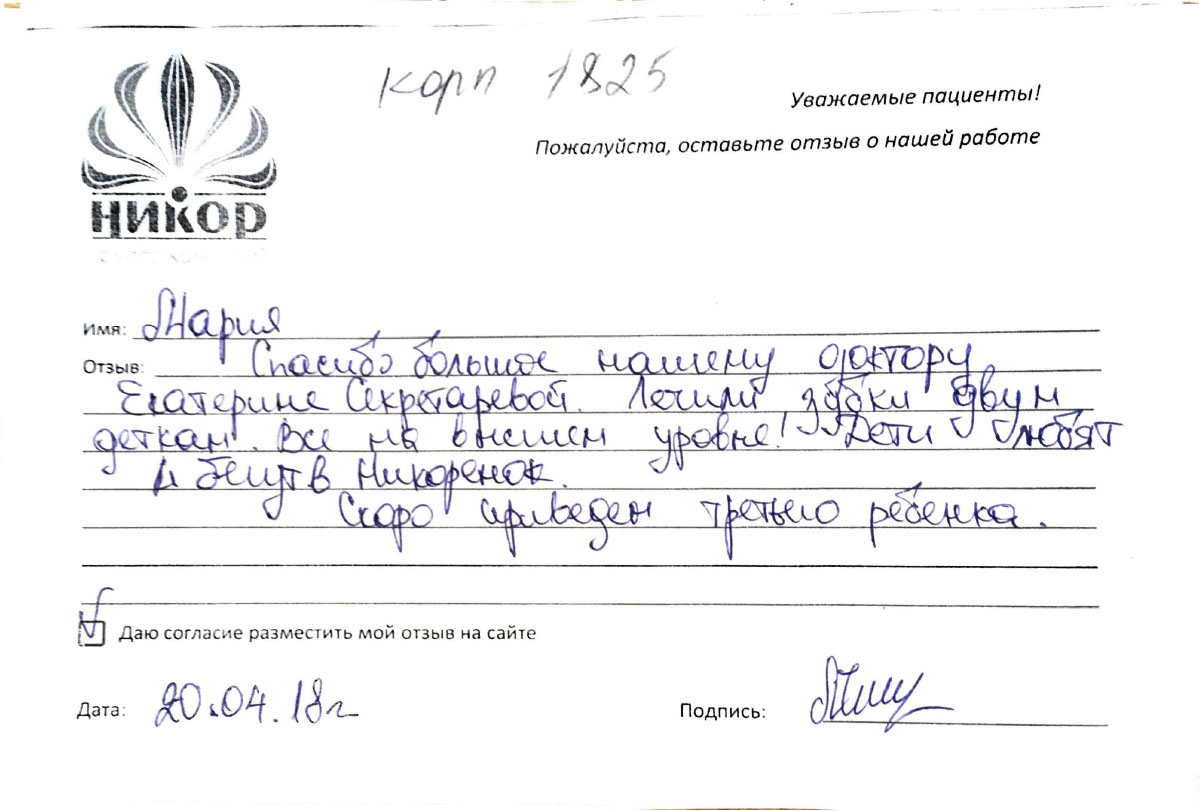 корп 1825
Уважаемые пациенты!
Пожалуйста, оставьте отзыв о нашей работе
НИКОР
Имя: Мария
Отзыв: Спасибо большое нашему доктору
Екатерине Секретаревой. Лечили зубки двум
деткам. Все на высшем уровне! Дети любят
и бегут в Никоренок.
Скоро приведем третьего ребенка.
Даю согласие разместить мой отзыв на сайте
Дата: 20.04.18г
Подпись: